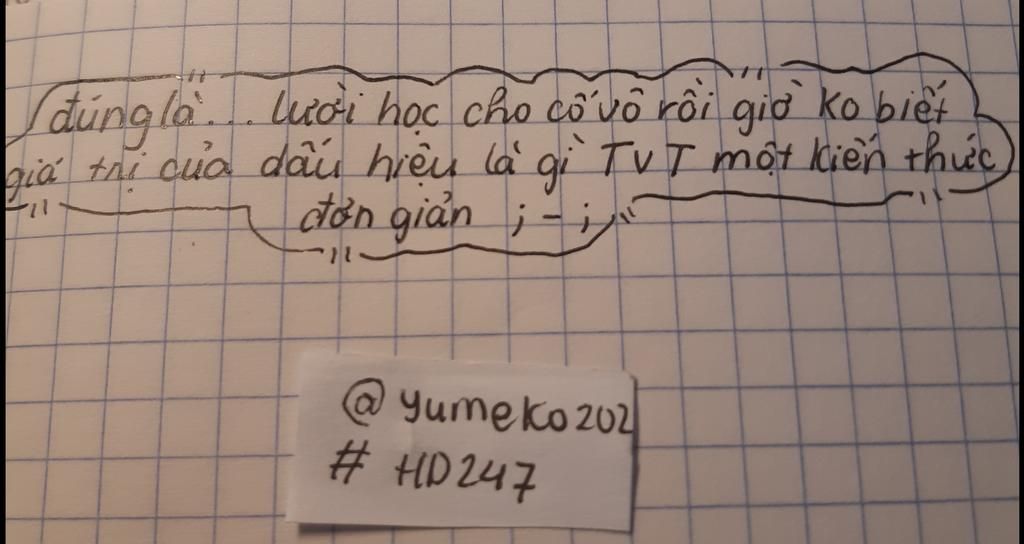 đúng là... lười học cho cố vô rồi giờ ko biết
giá trị của dấu hiệu là gì TVT một kiến thức
đơn giản ;-;
@yumeko202
# HD247